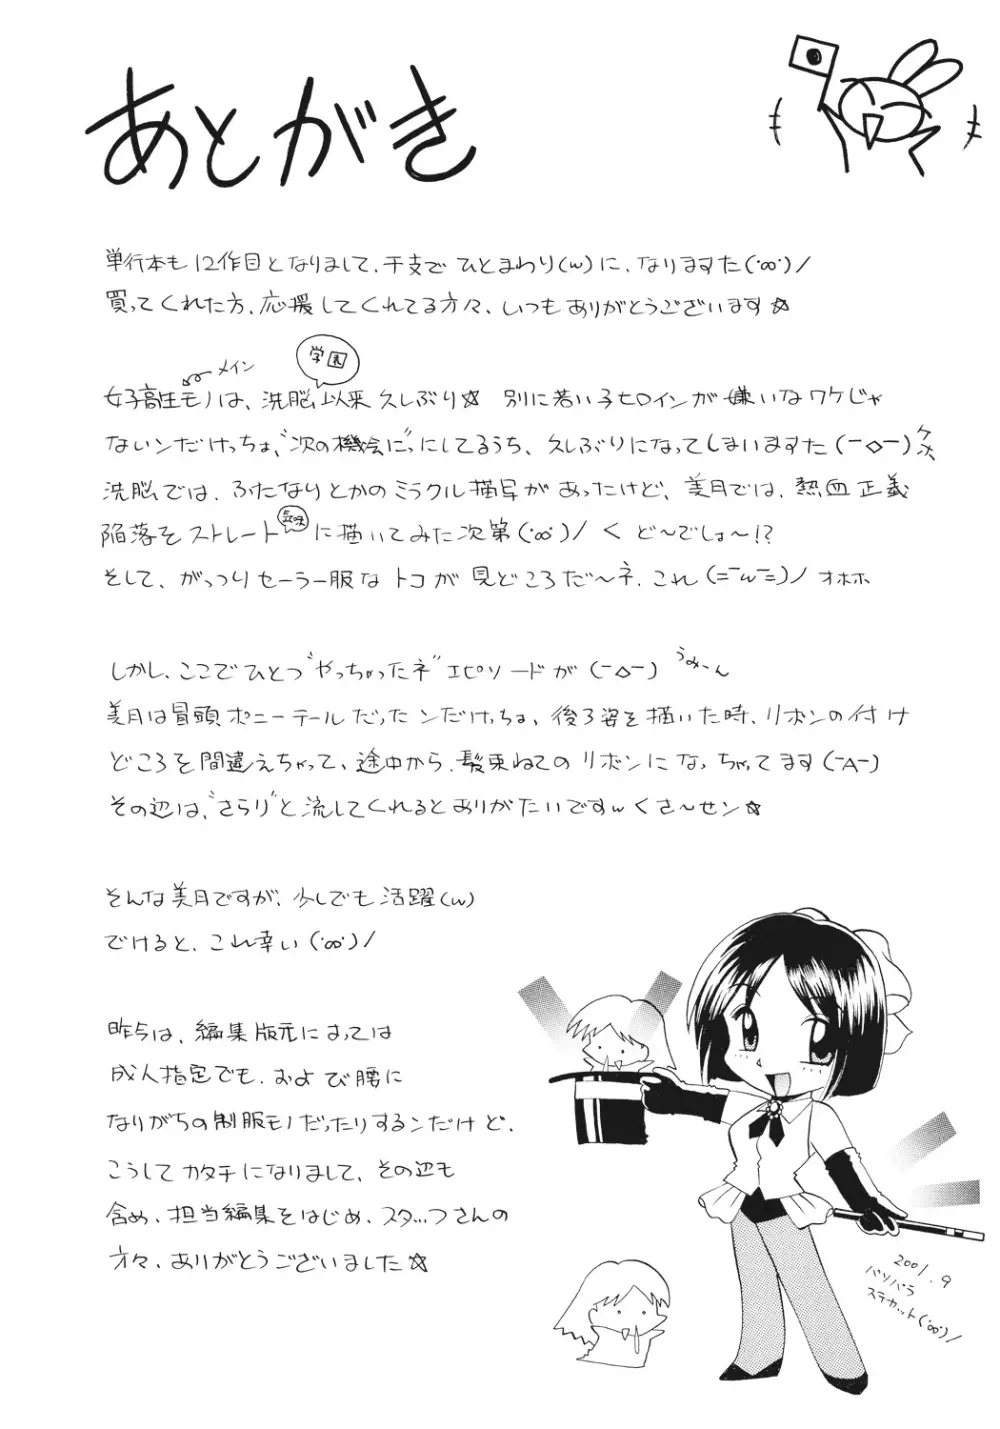 あとがき
単行本も12作目となりまして、干支でひとまわり(w)に、なりますた(·∞·)ノ
買ってくれた方、応援してくれてる方々、いつもありがとうございます☆
メイン
学園
女子高生モノは、洗脳以来久しぶり☆ 別に若い子ヒロインが嫌いなワケじゃ
ないンだけっちょ、"次の機会に"っにしてるうち、久しぶりになってしまいますた(ー◇ー)
洗脳では、ふたなりとかのミラクル描写があったけど、美月では、熱血正義
陥落をストレート気味に描いてみた次第(·∞·)ノ く ど〜でしょ〜!?
そして、がっつりセーラー服なトコが見どころだ〜ネ、これ(=ーwー=)ノ オホホ
しかし、ここでひとつ"やっちゃったネ"エピソードが(ー◇ー) うみーん
美月は冒頭ポニーテールだったンだけっちょ、後ろ姿を描いた時、リボンの付け
どころを間違えちゃって、途中から、髪束ねてのリボンになっちゃってます(ーAー)
その辺は、"さらり"と流してくれるとありがたいですw くさ〜せン☆
そんな美月ですが、少しでも活躍(w)
でけると、これ幸い(·∞·)ノ
昨今は、編集版元によっては
成人指定でも、および腰に
なりがちの制服モノだったりするンだけど、
こうしてカタチになりまして、その辺も
含め、担当編集をはじめ、スタッフさんの
方々、ありがとうございました☆
2001.9
パソパラ
ステカット(·∞·)ノ